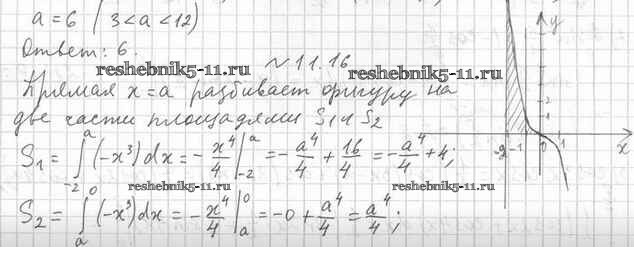 a = 6 ( 3 < a < 12 )
Ответ: 6.
reshebnik5-11.ru
reshebnik5-11.ru
№ 11.16
Прямая x = a разбивает фигуру на
две части площадями S₁ и S₂
S₁ = ∫₋₂ᵃ (-x³) dx = -x⁴/4 |₋₂ᵃ = -a⁴/4 + 16/4 = -a⁴/4 + 4;
reshebnik5-11.ru
reshebnik5-11.ru
S₂ = ∫ₐ⁰ (-x³) dx = -x⁴/4 |ₐ⁰ = -0 + a⁴/4 = a⁴/4;
y
2
1
-2 -1 0 1 x